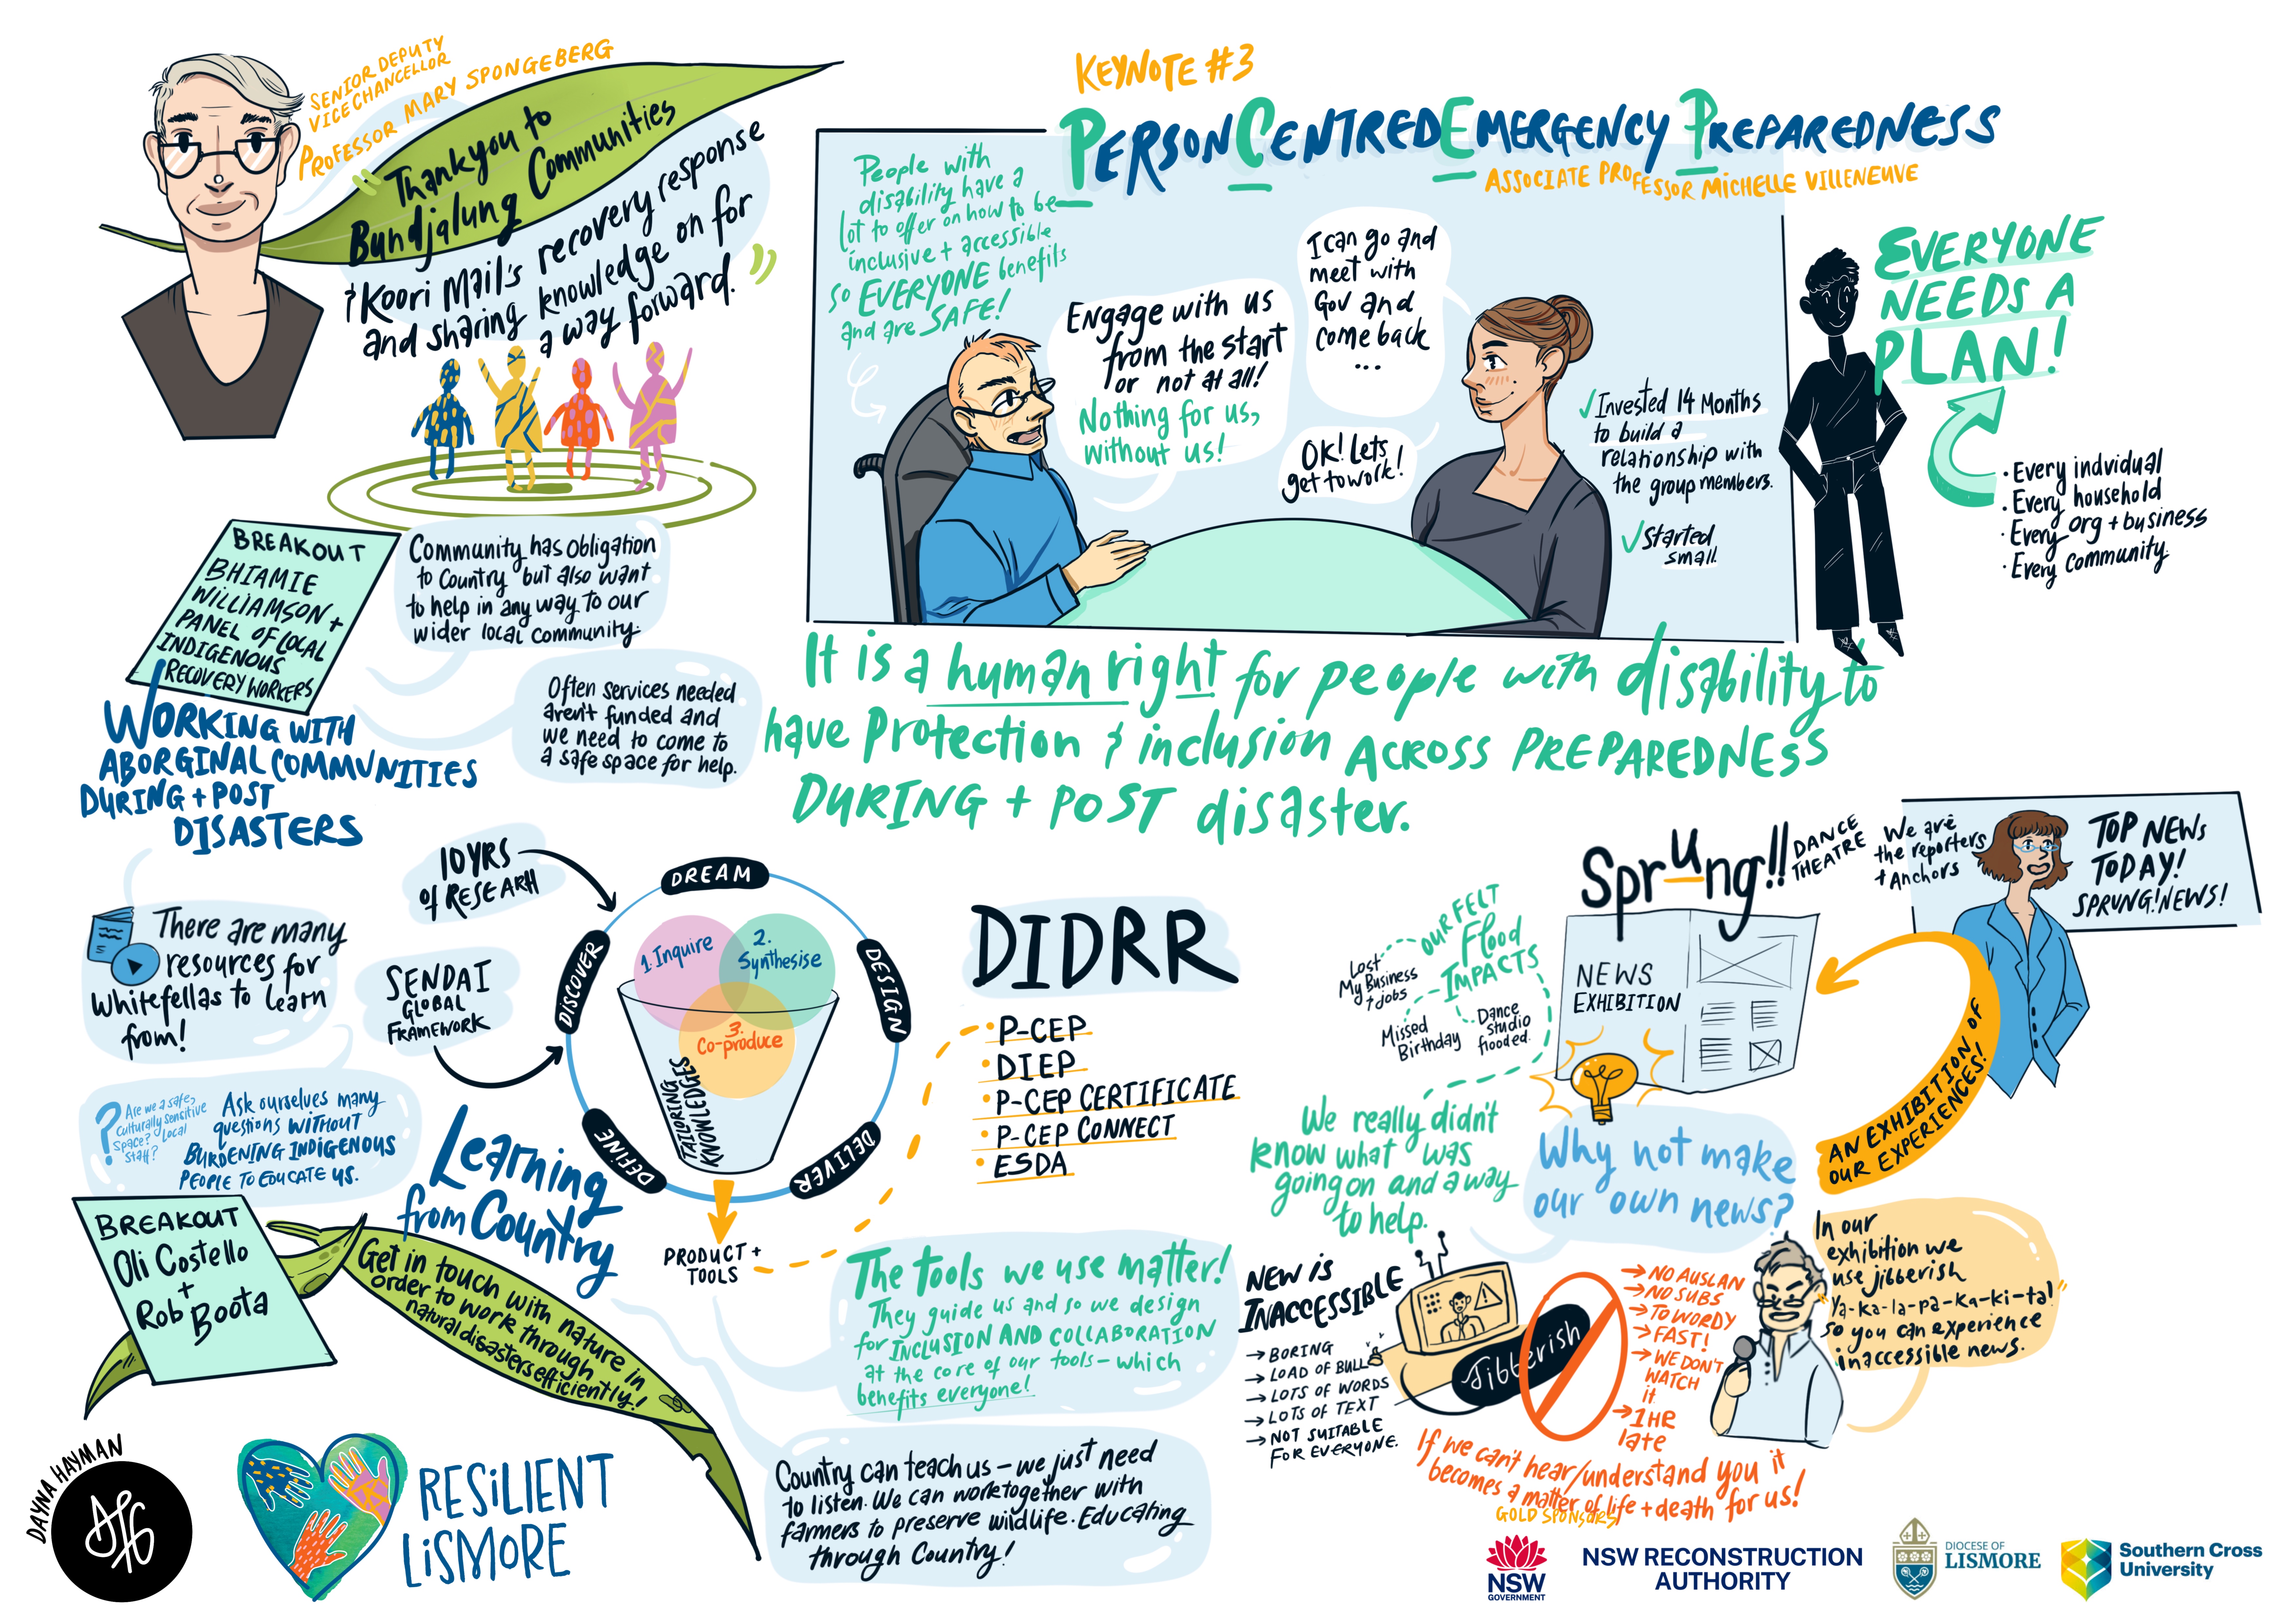 SENIOR DEPUTY
VICE CHANCELLOR
PROFESSOR MARY SPONGEBERG
"Thankyou to
Bundjalung Communities
+ Koori Mail's recovery response
and sharing knowledge on for
a way forward."
BREAKOUT
BHIAMIE
WILLIAMSON +
PANEL OF LOCAL
INDIGENOUS
RECOVERY WORKERS
Community has obligation
to Country but also want
to help in any way to our
wider local community.
Often services needed
aren't funded and
we need to come to
a safe space for help.
WORKING WITH
ABORGINAL COMMUNITIES
DURING + POST
DISASTERS
There are many
resources for
whitefellas to learn
from!
? Are we a safe,
culturally sensitive
space? Local
staff?
Ask ourselves many
questions WITHOUT
BURDENING INDIGENOUS
PEOPLE TO EDUCATE US.
KEYNOTE #3
PERSON CENTRED EMERGENCY PREPAREDNESS
ASSOCIATE PROFESSOR MICHELLE VILLENEUVE
People with
disability have a
lot to offer on how to be
inclusive + accessible
so EVERYONE benefits
and are SAFE!
Engage with us
from the start
or not at all!
Nothing for us,
without us!
I can go and
meet with
Gov and
come back
...
OK! Lets
get to work!
✓ Invested 14 Months
to build a
relationship with
the group members.
✓ Started
small.
EVERYONE
NEEDS A
PLAN!
• Every indvidual
• Every household
• Every org + business
• Every community.
It is a human right for people with disability to
have Protection & inclusion ACROSS PREPAREDNESS
DURING + POST disaster.
10 YRS
OF RESEARH
SENDAI
GLOBAL
FRAMEWORK
DREAM
DESIGN
DELIVER
DEFINE
DISCOVER
1. Inquire
2.
Synthesise
3.
Co-produce
TAILORING
KNOWLEDGES
PRODUCT +
TOOLS
DIDRR
• P-CEP
• DIEP
• P-CEP CERTIFICATE
• P-CEP CONNECT
• ESDA
The tools we use matter!
They guide us and so we design
for INCLUSION AND COLLABORATION
at the core of our tools – which
benefits everyone!
Learning
from Country
BREAKOUT
Oli Costello
+
Rob Boota
Get in touch with nature in
order to work through
natural disasters efficiently!
Country can teach us – we just need
to listen. We can work together with
farmers to preserve wildlife. Educating
through Country!
Sprung!!
DANCE
THEATRE
We are
the reporters
+ Anchors
TOP NEWS
TODAY!
SPRUNG!NEWS!
OUR FELT
Flood
IMPACTS
Lost
My Business
+ jobs
Missed
Birthday
Dance
studio
flooded.
NEWS
EXHIBITION
AN EXHIBITION OF
OUR EXPERIENCES!
We really didn't
know what was
going on and a way
to help.
Why not make
our own news?
NEW is
INACCESSIBLE
→ BORING
→ LOAD OF BULL
→ LOTS OF WORDS
→ LOTS OF TEXT
→ NOT SUITABLE
FOR EVERYONE.
Jibberish
→ NO AUSLAN
→ NO SUBS
→ TO WORDY
→ FAST!
→ WE DON'T
WATCH
it.
→ 1 HR
late
In our
exhibition we
use jibberish
"Ya-ka-la-pa-ka-ki-ta!"
so you can experience
inaccessible news.
If we can't hear/understand you it
becomes a matter of life + death for us!
DAYNA HAYMAN
RESILIENT
LISMORE
GOLD SPONSORS
NSW
GOVERNMENT
NSW RECONSTRUCTION
AUTHORITY
DIOCESE OF
LISMORE
Southern Cross
University